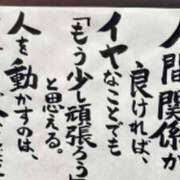 人間関係が
良ければ、
イヤなことでも
「もう少し頑張ろう」
と思える。
人を動かすのは、